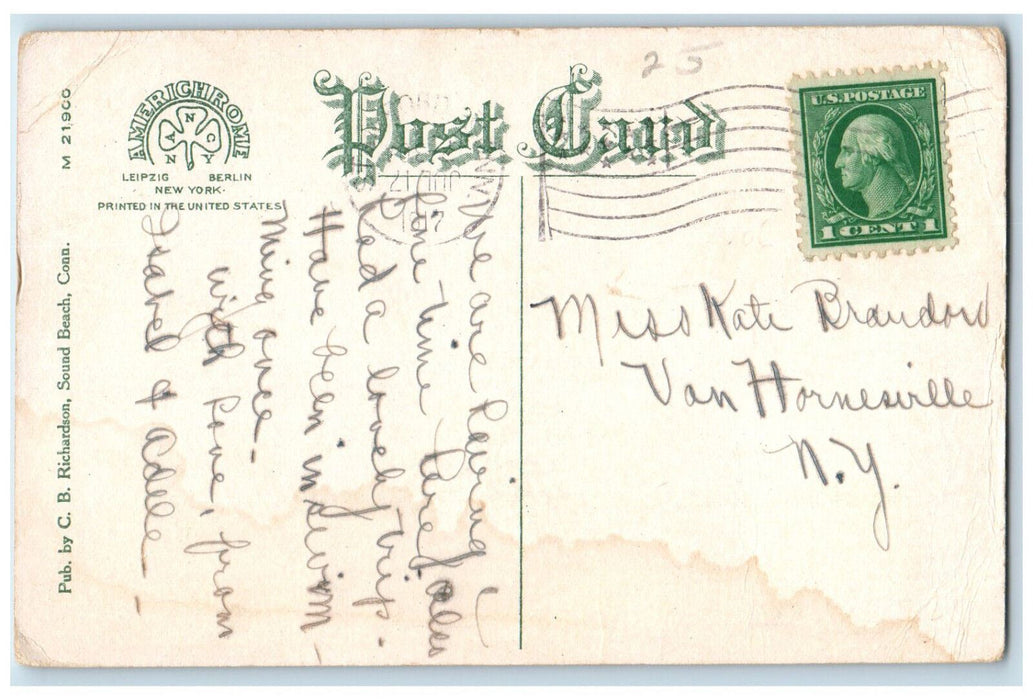 25
Post Card
AMERICHROME
A N C
N N Y
LEIPZIG BERLIN
NEW YORK.
PRINTED IN THE UNITED STATES
M 21,900
Pub. by C. B. Richardson, Sound Beach, Conn.
U.S. POSTAGE
1 CENT 1
We are having a
fine time here also
had a lovely trip.
Have been in swim-
ming once.
with love, from
Isabel & Adele
Miss Kate
Van Hornesville
N.Y.